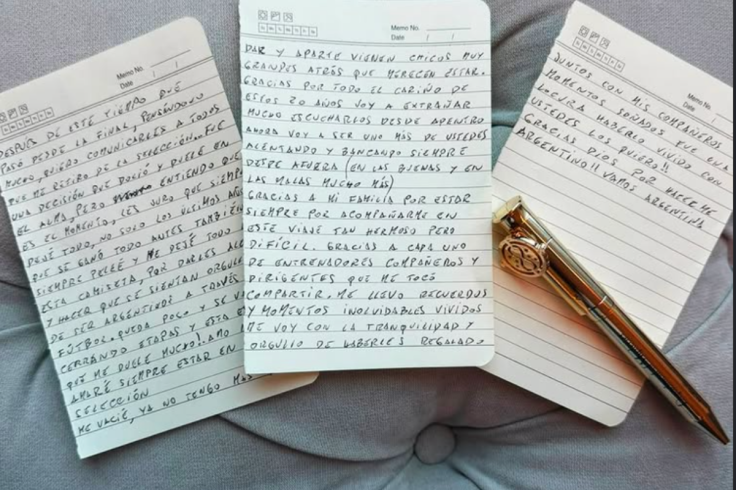 Memo No.
Date / /
DESPUÉS DE ESTE TIEMPO QUE
PASÓ DESDE LA FINAL, PENSÁNDOLO
MUCHO, QUIERO COMUNICARLES A TODOS
QUE ME RETIRO DE LA SELECCIÓN. FUE
UNA DECISIÓN QUE DOLIÓ Y DUELE EN
EL ALMA, PERO ENTIENDO QUE
ES EL MOMENTO. LES JURO QUE SIEMPRE
DEJÉ TODO, NO SOLO LOS ÚLTIMOS AÑOS
QUE SE GANÓ TODO ANTES TAMBIÉN
SIEMPRE PELEÉ Y ME DEJÉ TODO
ESTA CAMISETA, POR DARLES ALE
Y HACER QUE SE SIENTAN ORGULL
DE SER ARGENTINOS A TRAVÉS
FÚTBOL. QUEDA POCO Y SE VA
CERRANDO ETAPAS Y ESTA E
QUE ME DUELE MUCHO! AMO
AMARÉ SIEMPRE ESTAR EN
SELECCIÓN
ME VACIÉ, YA NO TENGO MÁS
Memo No.
Date / /
DAR Y APARTE VIENEN CHICOS MUY
GRANDES ATRÁS QUE MERECEN ESTAR.
GRACIAS POR TODO EL CARIÑO DE
ESTOS 20 AÑOS VOY A EXTRAÑAR
MUCHO ESCUCHARLOS DESDE ADENTRO
AHORA VOY A SER UNO MÁS DE USTEDES
ALENTANDO Y BANCANDO SIEMPRE
DESDE AFUERA (EN LAS BUENAS Y EN
LAS MALAS MUCHO MÁS)
GRACIAS A MI FAMILIA POR ESTAR
SIEMPRE POR ACOMPAÑARME EN
ESTE VIAJE TAN HERMOSO PERO
DIFÍCIL. GRACIAS A CADA UNO
DE ENTRENADORES COMPAÑEROS Y
DIRIGENTES QUE ME TOCÓ
COMPARTIR. ME LLEVO RECUERDOS
Y MOMENTOS INOLVIDABLES VIVIDOS
ME VOY CON LA TRANQUILIDAD Y
ORGULLO DE HABERLES REGALADO
Memo No.
Date
JUNTOS CON MIS COMPAÑEROS
MOMENTOS SOÑADOS FUE UNA
LOCURA HABERLO VIVIDO CON
USTEDES LOS QUIERO!!
GRACIAS DIOS POR HACERME
ARGENTINO!! VAMOS ARGENTINA